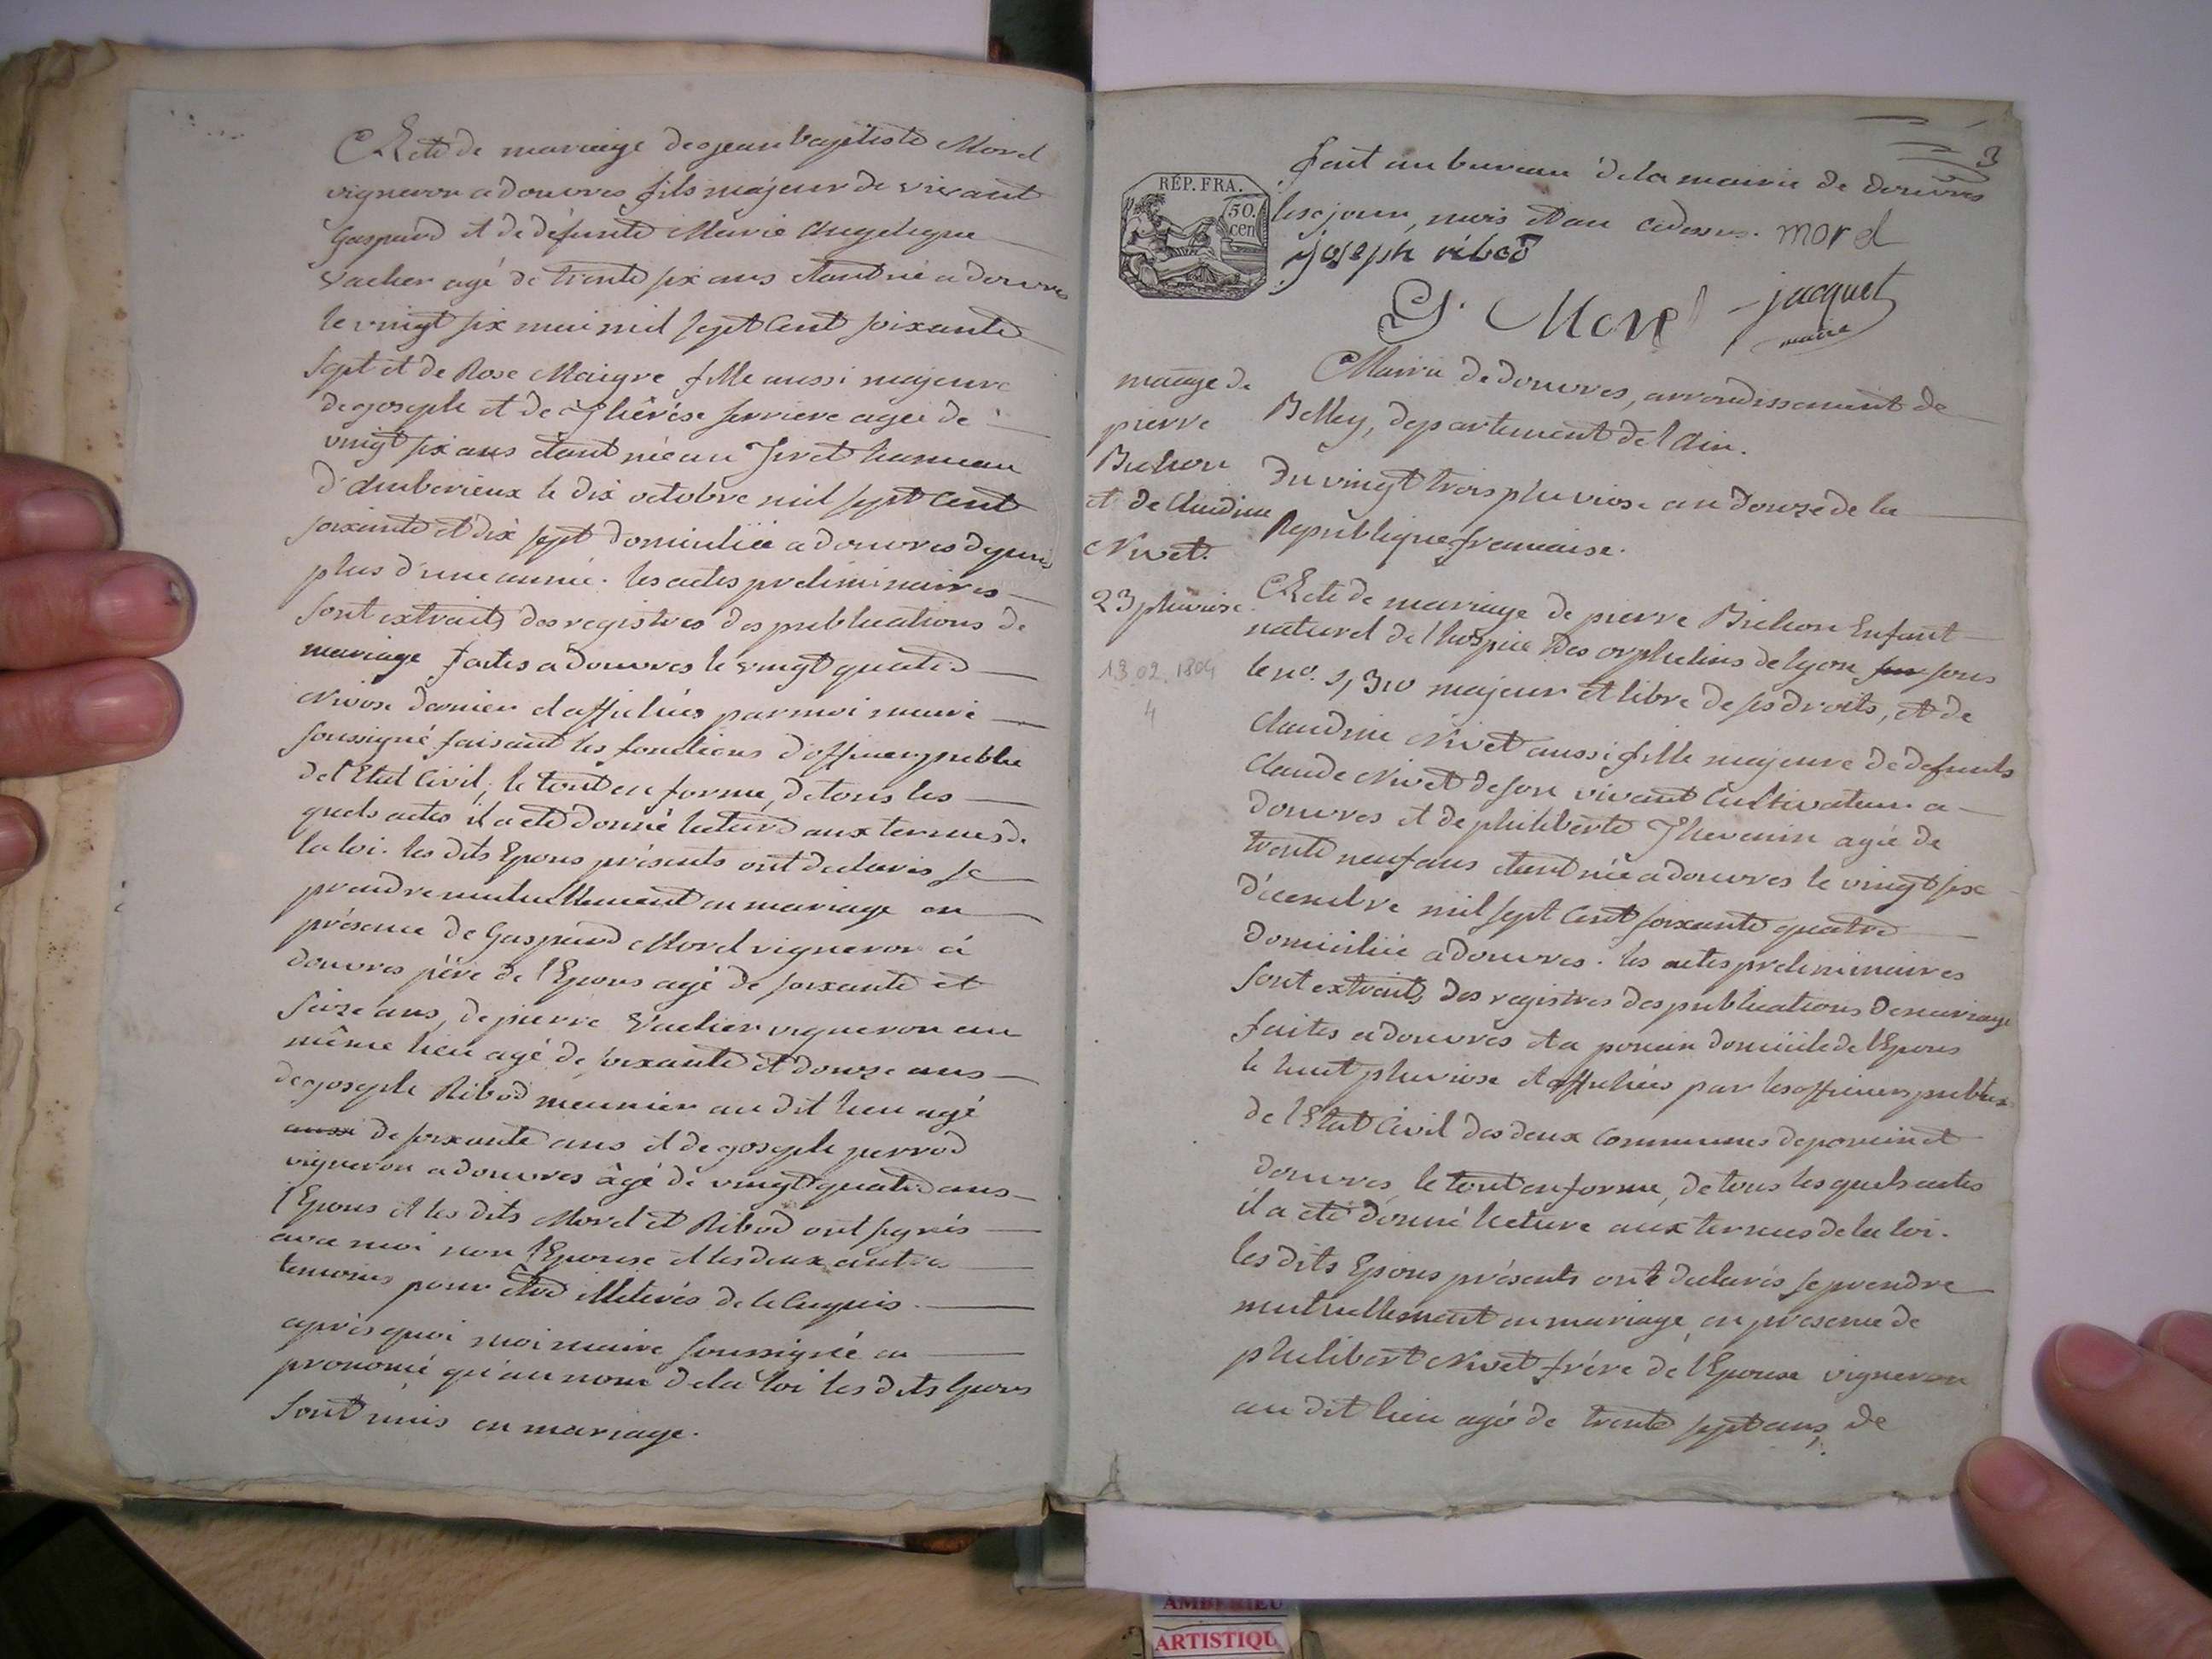 Acte de mariage de jean baptiste Morel
vigneron a douvres fils majeur de vivant
Gaspard et de défunte Marie Angelique
Vacher agé de trente six ans étant né a douvres
le vingt six mai mil sept cent soixante
sept et de Rose Maigre fille aussi majeure
de joseph et de Thérèse ferriere agée de
vingt six ans étant née au Tiret hameau
d'Amberieux le dix octobre mil sept cent
soixante et dix sept domiciliée a douvres depuis
plus d'une année. les actes preliminaires
sont extraits des registres des publications de
mariage faites a douvres le vingt quatre
Nivose dernier et affichées par moi maire
soussigné faisant les fonctions d'officier public
de l'Etat Civil; le tout en forme, de tous les
quels actes il a été donné lecture aux termes de
la loi. les dits Epous présents ont déclarés se
prendre mutuellement en mariage en
présence de Gaspard Morel vigneron à
douvres père de l'Epous agé de soixante et
seize ans, de pierre Vacher vigneron au
même lieu agé de soixante et douze ans
de joseph Ribod meunier au dit lieu agé
aussi de soixante ans et de joseph perrod
vigneron a douvres âgé de vingt quatre ans
l'Epous et les dits Morel et Ribod ont signés
avec moi non l'Epouse et les deux autres
temoins pour être illiterés de ce enquis.
après quoi moi maire soussigné ai
prononcé qu'au nom de la loi les dits Epous
sont unis en mariage.
3
fait au bureau de la mairie de douvres
RÉP. FRA.
50. cen
les jour, mois et an cidessus. morel
joseph ribod
G. Morel jacquet
maire
Mairie de douvres, arrondissement de
Belley, departement de l'Ain.
mariage de
pierre
Bichon
et de Claudine
Nivet.
23 pluviose
13.02.1804
4
du vingt trois pluviose an douze de la
Republique francaise.
Acte de mariage de pierre Bichon Enfant
naturel de l'hospice des orphelins de lyon sur sous
le no. 2,310 majeur et libre de ses droits, et de
Claudine Nivet aussi fille majeure de defunts
Claude Nivet de son vivant Cultivateur a
douvres et de philiberte Thevenin agée de
trente neuf ans étant née a douvres le vingt six
décembre mil sept cent soixante quatre
domiciliée a douvres. les actes preliminaires
sont extraits des registres des publications de mariage
faites a douvres et a poncin domicile de l'Epous
le huit pluviose et affichées par les officiers publics
de l'Etat Civil des deux Communes de poncin et
douvres, le tout en forme, de tous les quels actes
il a été donné lecture aux termes de la loi.
les dits Epous présents ont déclarés se prendre
mutuellement en mariage, en presence de
philibert Nivet frère de l'Epouse vigneron
au dit lieu agé de trente sept ans, de
AMBERIEU
ARTISTIQU